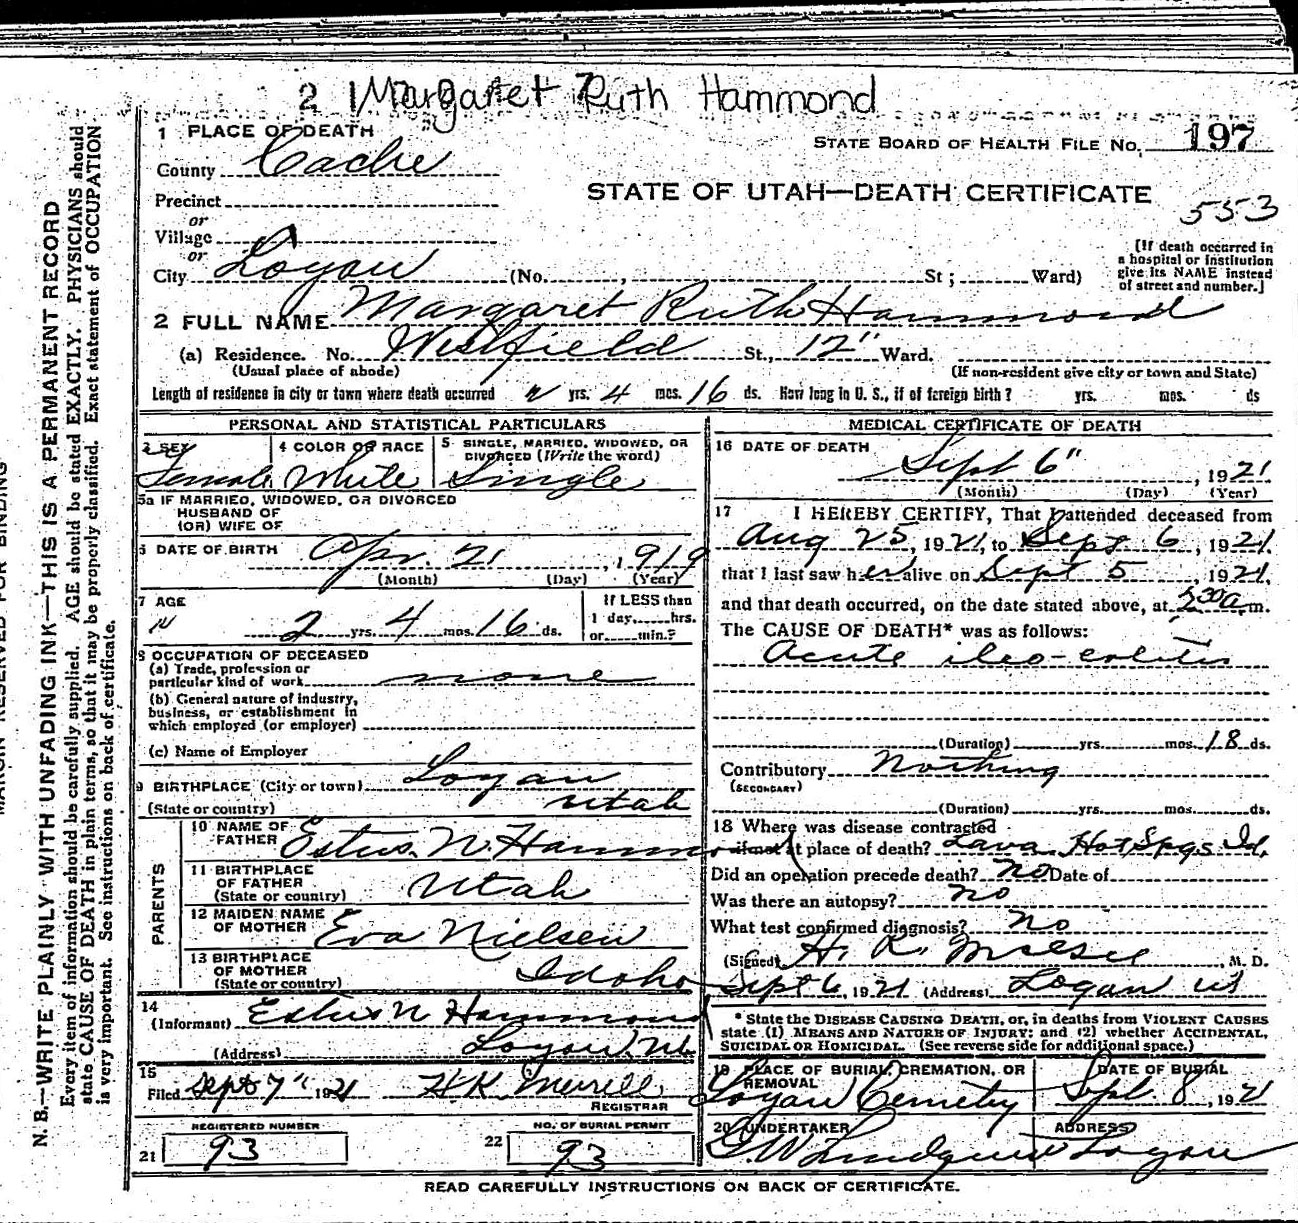 2 Margaret Ruth Hammond
1 PLACE OF DEATH
County Cache
STATE BOARD OF HEALTH FILE No. 197
Precinct
STATE OF UTAH—DEATH CERTIFICATE
553
or
Village
or
City Logan (No. , St; Ward)
[If death occurred in
a hospital or institution
give its NAME instead
of street and number.]
2 FULL NAME Margaret Ruth Hammond
(a) Residence. No. Westfield St., 12" Ward.
(Usual place of abode) (If non-resident give city or town and State)
Length of residence in city or town where death occurred 2 yrs. 4 mos. 16 ds. How long in U. S., if of foreign birth? yrs. mos. ds
PERSONAL AND STATISTICAL PARTICULARS
3 SEX Female
4 COLOR OR RACE White
5 SINGLE, MARRIED, WIDOWED, OR
DIVORCED (Write the word)
Single
5a IF MARRIED, WIDOWED, OR DIVORCED
HUSBAND OF
(OR) WIFE OF
6 DATE OF BIRTH Apr. 21, 1919
(Month) (Day) (Year)
7 AGE
2 yrs. 4 mos. 16 ds.
If LESS than
1 day, hrs.
or min.?
8 OCCUPATION OF DECEASED
(a) Trade, profession or
particular kind of work none
(b) General nature of industry,
business, or establishment in
which employed (or employer)
(c) Name of Employer
9 BIRTHPLACE (City or town) Logan
(State or country) Utah
PARENTS
10 NAME OF
FATHER Estus N. Hammond
11 BIRTHPLACE
OF FATHER
(State or country) Utah
12 MAIDEN NAME
OF MOTHER Eva Nielsen
13 BIRTHPLACE
OF MOTHER
(State or country) Idaho
14
(Informant) Estus N Hammond
(Address) Logan, Ut.
15
Filed Sept 7" 1921 H.K. Merrill,
REGISTRAR
REGISTERED NUMBER
21 93
NO. OF BURIAL PERMIT
22 93
MEDICAL CERTIFICATE OF DEATH
16 DATE OF DEATH
Sept 6", 1921
(Month) (Day) (Year)
17 I HEREBY CERTIFY, That I attended deceased from
Aug 25, 1921, to Sept 6, 1921.
that I last saw her alive on Sept 5, 1921,
and that death occurred, on the date stated above, at 2 30 a.m.
The CAUSE OF DEATH* was as follows:
Acute ileo-colitis
(Duration) yrs. mos. 18 ds.
Contributory Nothing
(SECONDARY)
(Duration) yrs. mos. ds.
18 Where was disease contracted
if not at place of death? Lava Hot Spgs Id.
Did an operation precede death? No Date of
Was there an autopsy? no
What test confirmed diagnosis? no
(Signed) H. K. , M. D.
Sept 6, 1921 (Address) Logan Ut
* State the DISEASE CAUSING DEATH, or, in deaths from VIOLENT CAUSES
state (1) MEANS AND NATURE OF INJURY; and (2) whether ACCIDENTAL,
SUICIDAL OR HOMICIDAL. (See reverse side for additional space.)
19 PLACE OF BURIAL, CREMATION, OR
REMOVAL
Logan Cemetry
DATE OF BURIAL
Sept. 8, 1921
20 UNDERTAKER
G.W Lindquist
ADDRESS
Logan
READ CAREFULLY INSTRUCTIONS ON BACK OF CERTIFICATE.
MARGIN RESERVED FOR BINDING
N. B.—WRITE PLAINLY WITH UNFADING INK—THIS IS A PERMANENT RECORD
Every item of information should be carefully supplied. AGE should be stated EXACTLY. PHYSICIANS should
state CAUSE OF DEATH in plain terms, so that it may be properly classified. Exact statement of OCCUPATION
is very important. See instructions on back of certificate.